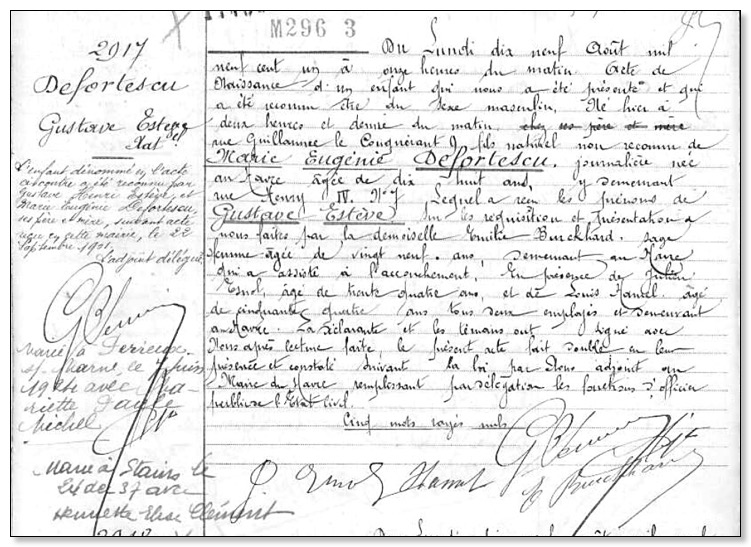 M296 3
2917
Defortescu
Gustave Estève
Nat
L'enfant dénommé en l'acte
ci contre a été reconnu par
Gustave Henri Estève, et
Marie Eugénie Defortescu,
ses père et mère, suivant acte
reçu en cette mairie, le 22
Septembre 1901.
L'adjoint délégué,
Marié à Perreux
s/ Marne, le juin
1924 avec
Mariette
Michel
Marié à Stains le
24 dec 37 avec
Henriette Elisa Clément
Du Lundi dix neuf Août mil
neuf cent un à onze heures du matin. Acte de
Naissance d'un enfant qui nous a été présenté et qui
a été reconnu être du sexe masculin, Né hier à
deux heures et demie du matin, chez ses père et mère
rue Guillaume le Conquérant 9 fils naturel non reconnu de
Marie Eugénie Defortescu, journalière née
au Havre âgée de dix huit ans, y demeurant
rue Henry IV. N° 7 Lequel a reçu les prénoms de
Gustave Estève Sur la réquisition et présentation à
nous faites par la demoiselle Emilie Burckhard, sage
femme âgée de vingt neuf ans, demeurant au Havre
qui a assisté à l'accouchement, En présence de Julien
Esnol, âgé de trente quatre ans, et de Louis Hamel, âgé
de cinquante quatre ans tous deux employés et demeurant
au Havre. La déclarante et les témoins ont signé avec
Nous après lecture faite, le présent acte fait double en leur
présence et constaté suivant la loi par Nous adjoint au
Maire du Havre remplissant par délégation les fonctions d'officier
public de l'Etat Civil.
Cinq mots rayés nuls
Esnol Hamel E Burckhard